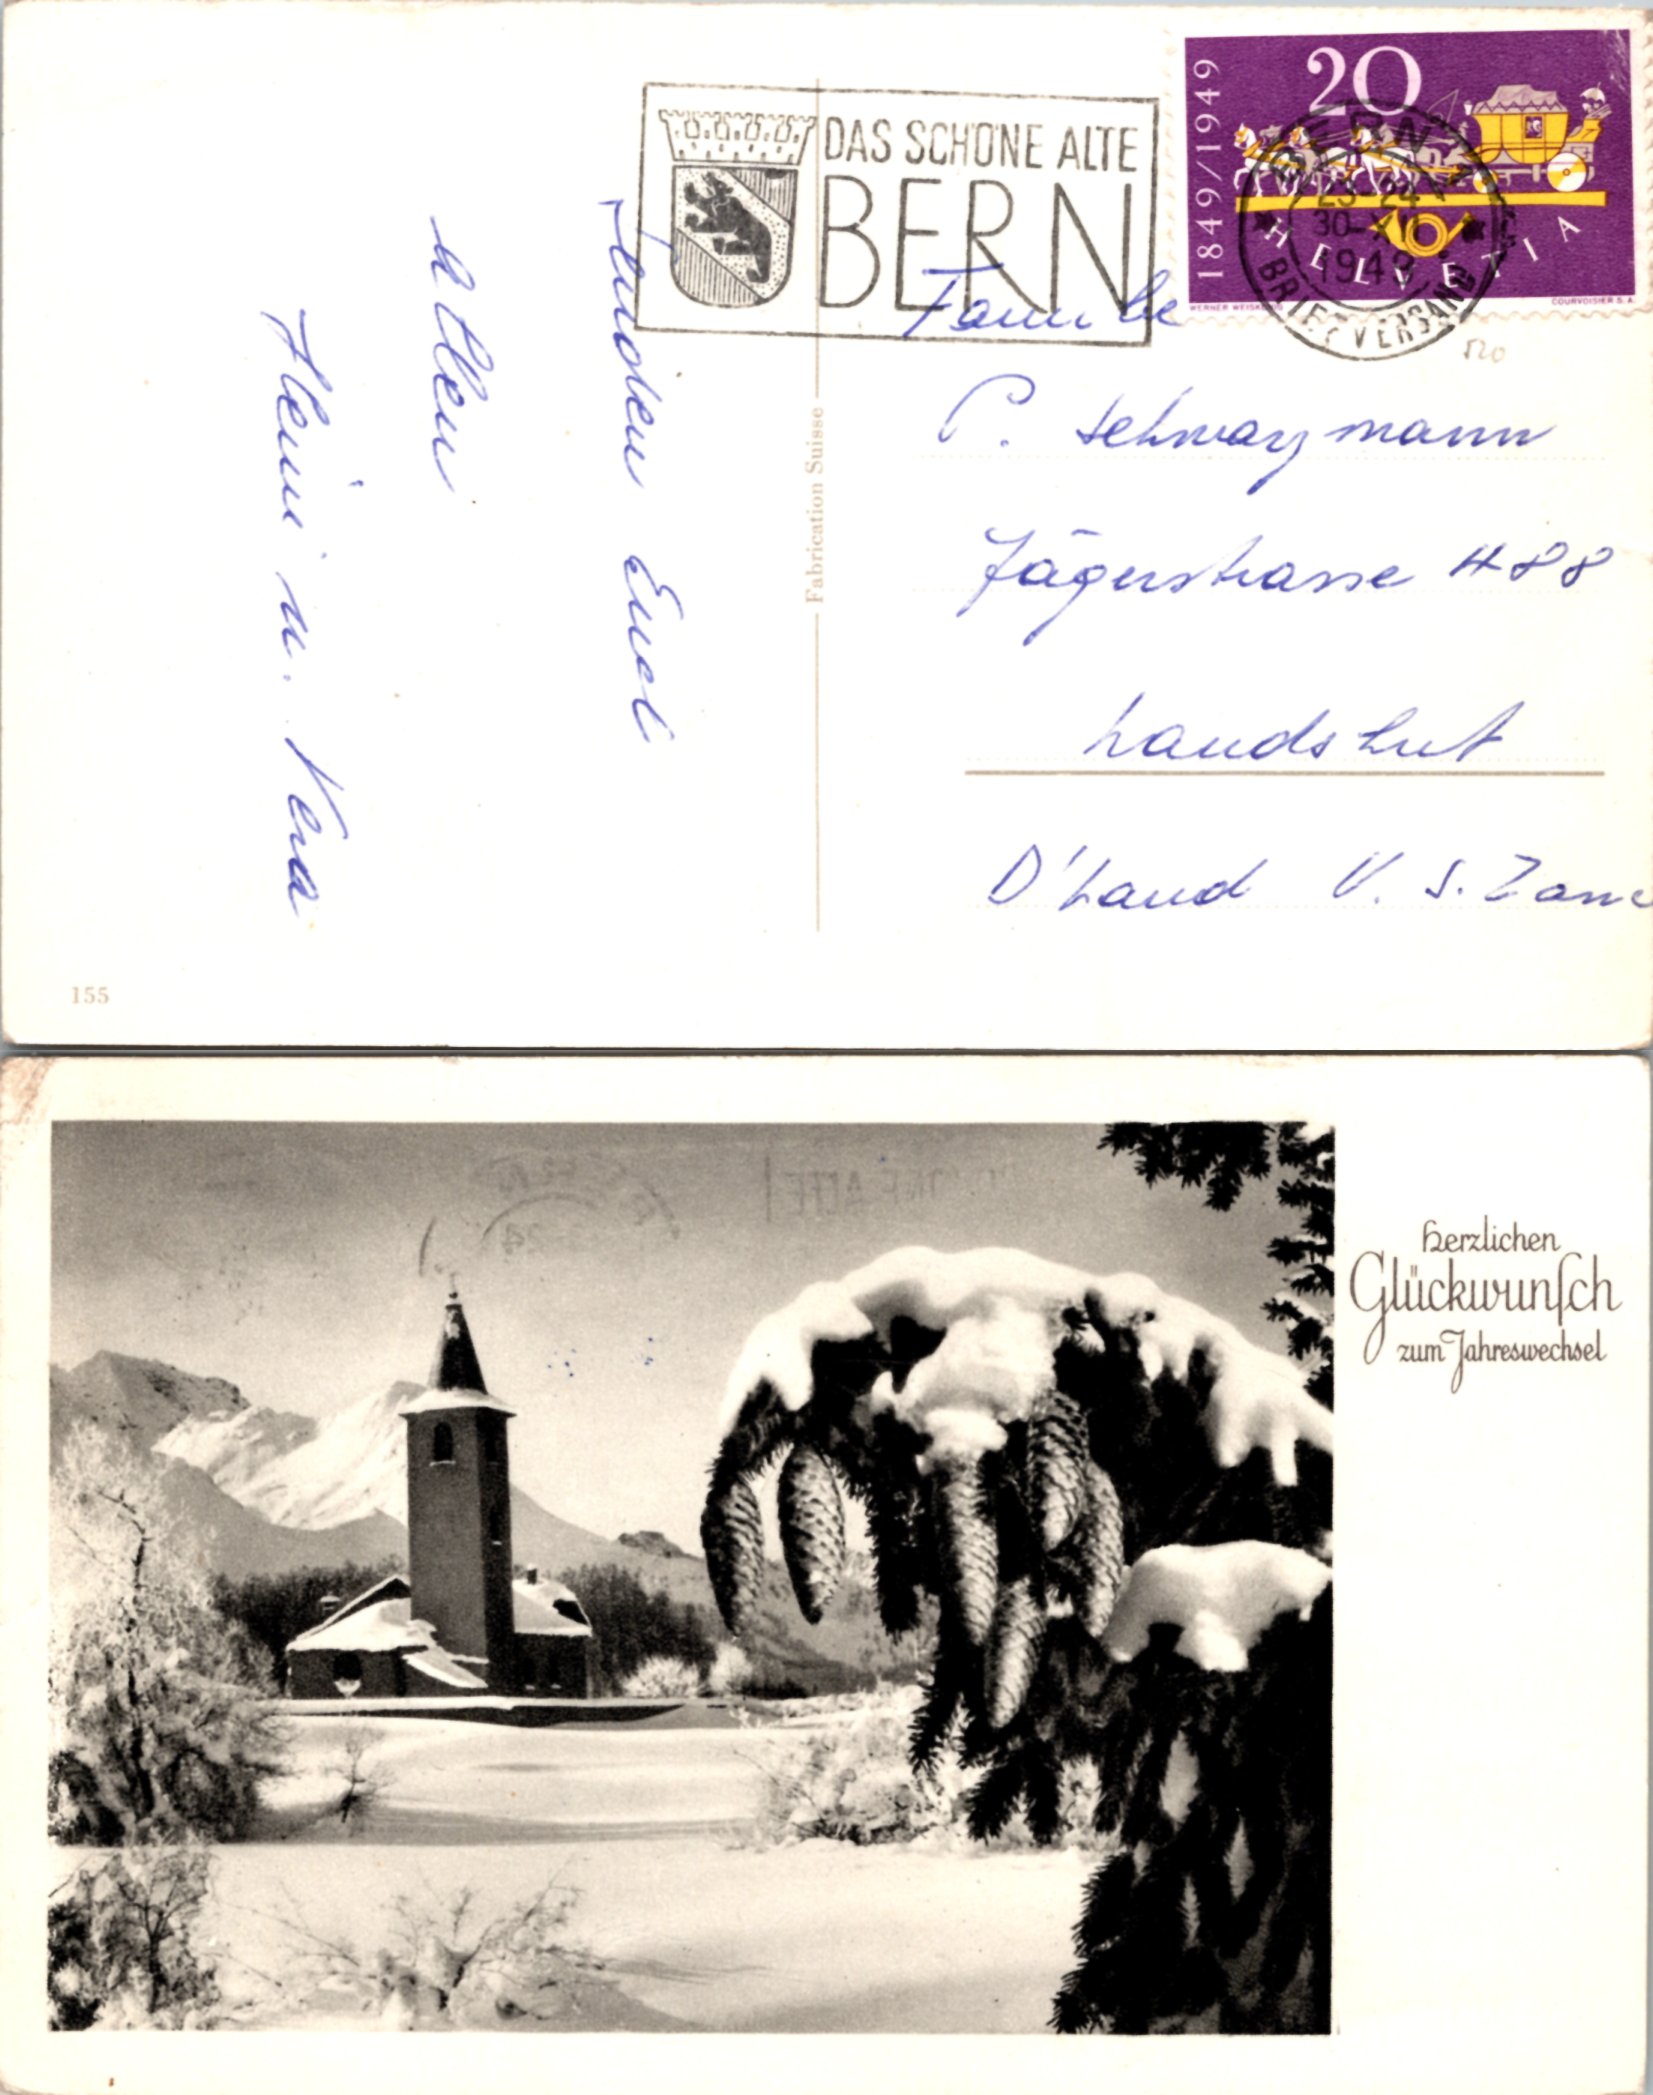 DAS SCHÖNE ALTE
BERN
1849/1949
20
HELVETIA
WERNER WEISK
COURVOISIER S.A.
BERN 1
23-24
30-XII
1949
BRIEFVERSAND
520
Familie
P. Schwarzmann
Jägerstrasse 488
Landshut
D'Land U.S. Zone
Fabrication Suisse
senden Euch
allen
Heini u. Vera
155
herzlichen
Glückwunsch
zum Jahreswechsel